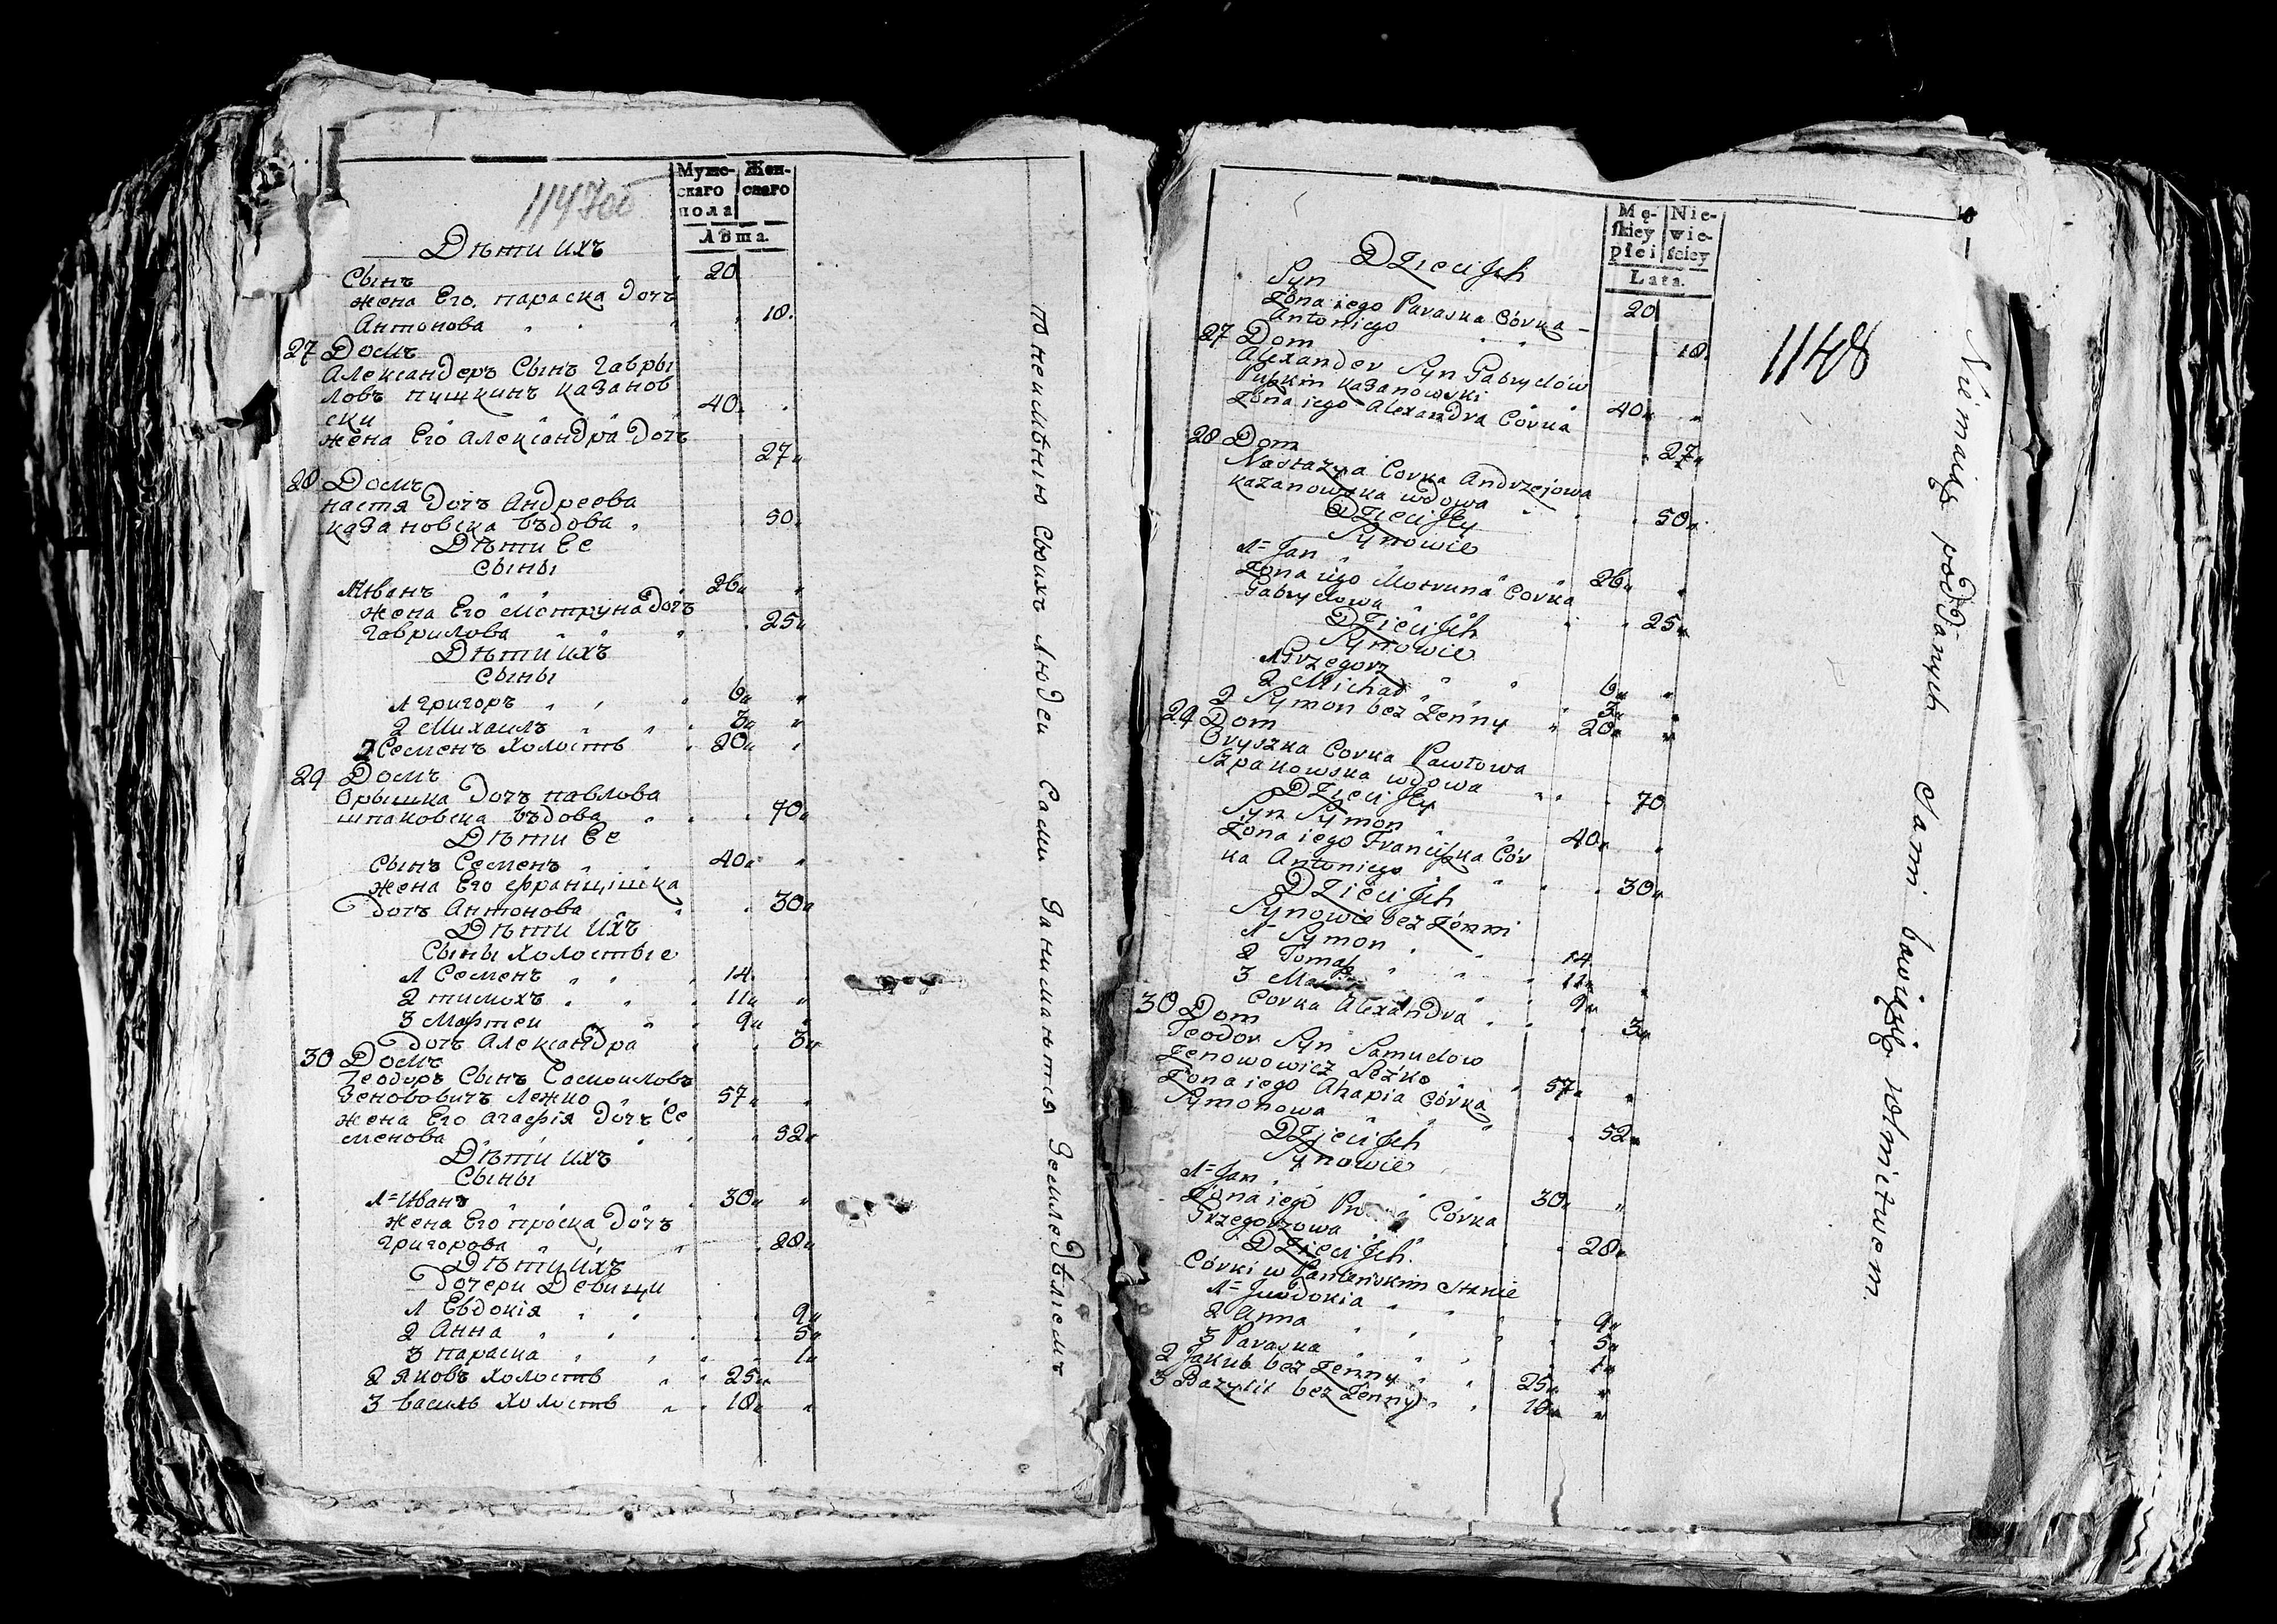 1147об
Муже-
скаго
пола
Жен-
скаго
Лѣта.
Дѣти ихъ
Сынъ 20
жена Его параска дочъ
Антонова 18.
27 Домъ
Александеръ Сынъ Гаври
ловъ пушкинъ казанов
ски 40
жена Его Александра дочъ
27
28 Домъ
настя дочъ Андреева
казановска въдова 50
Дѣти Ее
Сыны
1 Иванъ 26
жена Его Мотруна дочъ
Гаврилова 25
Дѣти ихъ
Сыны
1 Григоръ 6
2 Михаилъ 3
2 Семенъ холостъ 20
29 Домъ
Орышка дочъ павлова
шпаковска въдова 70
Дѣти Ее
Сынъ Семенъ 40
жена Его францишка
дочъ Антонова 30
Дѣти ихъ
Сыны холостые
1 Семенъ 14
2 тимохъ 11
3 Мартеи 9
дочъ Александра 3
30 Домъ
Теодоръ Сынъ Самоиловъ
Зеновович Лежко 57
жена Его Агафія дочъ Се
менова 52
Дѣти ихъ
Сыны
1 Иванъ 30
жена Его проска дочъ
Григорова 28
Дѣти ихъ
дочери Девици
1 Евдокія 9
2 Анна 5
3 параска 1
2 яковъ холостъ 25
3 василь холостъ 18
по неимѣнію Своихъ людеи Сами Занимаются Земледѣліемъ
Mę-
skiey
płci
Nie-
wie-
sciey
Lata.
1148
Dzieci Jch
Syn 20
Żona iego Paraska Córka
Antoniego 18
27 Dom
Alexander Syn Gabryelów
Puszkin Kazanowski 40
Żona iego Alexandra Córka
27
28 Dom
Nastazya Corka Andrzejowa
Kazanowska wdowa 50
Dzieci Jey
Synowie
1 Jan 26
Żona iego Motruna Córka
Gabryelowa 25
Dzieci Jch
Synowie
1 Grzegorz 6
2 Michał 3
2 Symon bez Żenny 20
29 Dom
Oryszka Corka Pawłowa
Szpakowska wdowa 70
Dzieci Jey
Syn Symon 40
Żona iego Franciszka Cór
ka Antoniego 30
Dzieci Jch
Synowie bez Żenni
1 Symon 14
2 Tomasz 11
3 9
Corka Alexandra 3
30 Dom
Teodor Syn Samuelow
Zenowowicz Leżko 57
Żona iego Ahapia Córka
Symonowa 52
Dzieci Jch
Synowie
1 Jan 30
Żona iego Córka
Grzegorzowa 28
Dzieci Jch
Córki w Panieńskim Stanie
1 Jewdokia 9
2 Anna 5
3 Paraska 1
2 Jakub bez Żenny 25
3 Bazylii bez Żenny 18
Niemaiąc poddanych Sami bawią się rolnictwem.